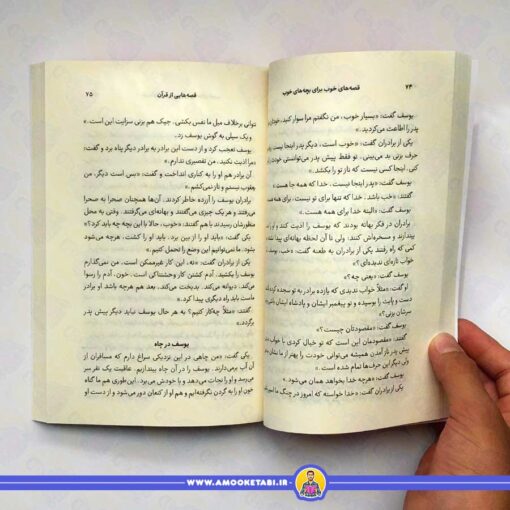 ۷۴
قصه‌های خوب برای بچه‌های خوب
یوسف گفت: «بسیار خوب، من نگفتم مرا سوار کنید.
را اطاعت می‌کردید.»
یکی از برادران گفت: «خوب است، دیگر پدر اینجا نیست
حرف بزند بد می‌بینی. تو فقط پیش پدر می‌توانستی
کنی. اینجا کسی نیست که ناز تو را بکشد.»
یوسف گفت: «پدر اینجا نیست. خدا که همه جا هست.»
گفتند: «خب باشد. خدا که تنها برای تو نیست.
یوسف گفت: «البته خدا برای همه هست.»
برادران در فکر بهانه بودند که یوسف را اذیت کنند
دارند و مسخره‌اش کنند. ولی تا آن لحظه بهانه‌ای پیدا
کمی که راه رفتند یکی از برادران به طعنه گفت: «خب، یوسف
خواب تازه‌ای ندیده‌ای؟»
یوسف گفت: «یعنی چه؟»
گفتند: «مثلاً خواب ندیدی که یازده برادر به تو
دست و پایت را بوسیدند و تو پیغمبر ایشان و پادشاه ایشان
سرشان بزنی؟»
یوسف گفت: «مقصودتان چیست؟»
گفتند: «مقصودمان این است که تو خیال کردی با خواب
پیش پدر باز آمدن همیشه می‌توانی خودت را بهتر از ما
ولی دیگر این حرف‌ها تمام شده است.»
یوسف گفت: «هرچه خدا بخواهد همان می‌شود.»
یکی از برادران گفت: «خدا خواسته که امروز در چنگ ما
قصه‌هایی از قرآن
۷۵
نتوانی برخلاف میل ما نفس بکشی. جیک هم بزنی سزایت این است.»
و یک سیلی به گوش یوسف زد.
یوسف تعجب کرد و از دست این برادر به برادر دیگر پناه برد و گفت:
«مرا اذیت نکنید. من تقصیری ندارم.»
برادر دیگر هم او را به کناری انداخت و گفت: «بس است دیگر، من
یعقوب نیستم و ناز نمی‌کشم.»
برادران یوسف را آزرده خاطر کردند. آن‌ها همچنان صحنه را
می‌گرفتند و هر یک چیزی می‌گفتند و بهانه‌ای می‌گرفتند. وقتی به محل
منظورشان رسیدند باد گفتند: «خوب، حالا با این بچه چه باید کرد؟»
یکی گفت: «باید او را از بین برد. باید او را کشت. هرچه می‌شود
بشود، ما نمی‌توانیم این وضع را تحمل کنیم.»
یکی از برادران گفت: «نه. این کار غیرممکن است. من نمی‌گذارم
یوسف را بکشید. آدم کشتن کار وحشتناکی است. خون، آدم را رسوا
می‌کند. دیوانه می‌کند. بدبخت می‌کند. بعد هم هرچه باشد او برادر
ماست باید راه دیگری پیدا کرد.»
گفتند: «مثلاً چه‌کار کنیم؟ به هر حال یوسف نباید دیگر پیش پدر
برگردد.»
یوسف در چاه
یکی گفت: «من چاهی در این نزدیکی سراغ دارم که مسافران از
آن آب برمی‌دارند. یوسف را در آن چاه بیندازیم. عاقبت یک نفر سر
می‌رسد و او را نجات می‌دهد و با خودش می‌برد. این‌طوری هم ما گناه
خون او را به گردن نگرفته‌ایم و هم او از کنعان دور می‌شود و از دست او
WWW.AMOOKETABI.IR